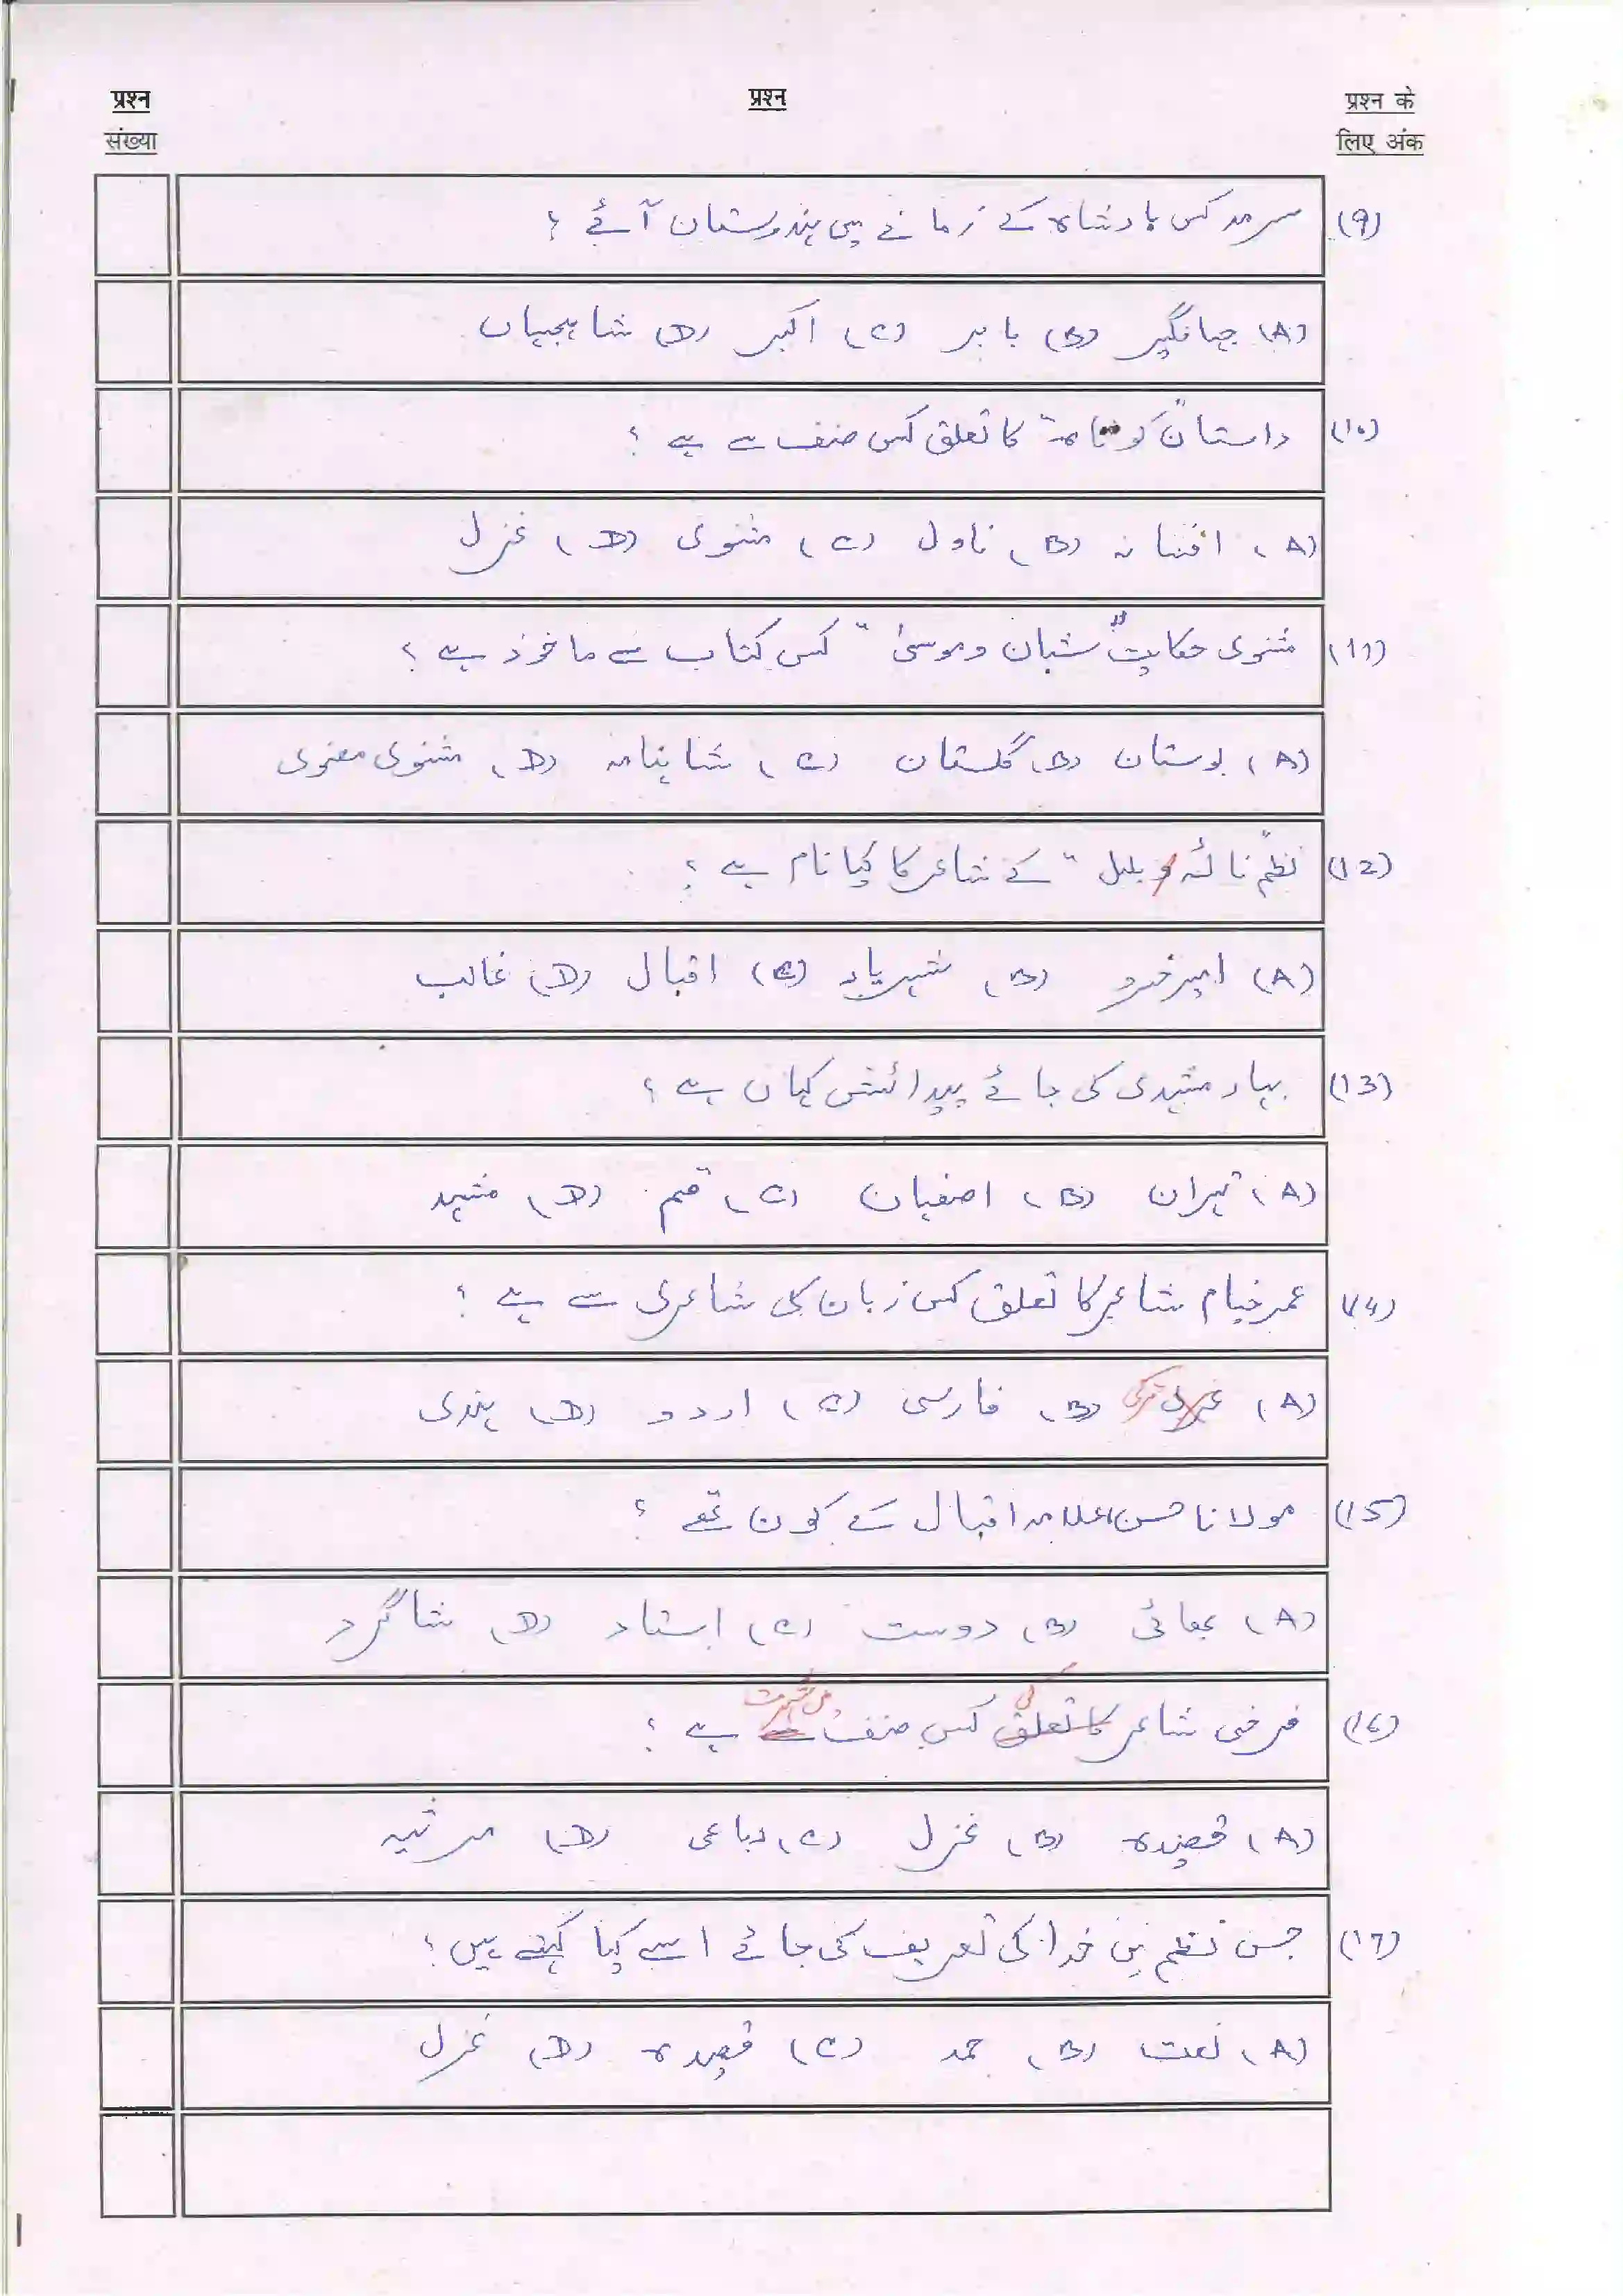 प्रश्न संख्या
प्रश्न
प्रश्न के लिए अंक
(9) سرمد کس بادشاہ کے زمانے میں ہندوستان آئے ؟
(A) جہانگیر (B) بابر (C) اکبر (D) شاہجہاں
(10) داستان "کوتاہ" کا تعلق کس صنف سے ہے ؟
(A) افسانہ (B) ناول (C) مثنوی (D) غزل
(11) مثنوی حکایت "شبان و موسیٰ" کس کتاب سے ماخوذ ہے ؟
(A) بوستان (B) گلستان (C) شاہنامہ (D) مثنوی معنوی
(12) نظم "نالۂ بلبل" کے شاعر کا کیا نام ہے ؟
(A) امیر خسرو (B) شہریار (C) اقبال (D) غالب
(13) بہار مشہدی کی جائے پیدائش کہاں ہے ؟
(A) تہران (B) اصفہان (C) قم (D) مشہد
(14) عمر خیام شاعر کا تعلق کس زبان کی شاعری سے ہے ؟
(A) ترکی (B) فارسی (C) اردو (D) ہندی
(15) مولانا حسن علامہ اقبال کے کون تھے ؟
(A) بھائی (B) دوست (C) استاد (D) شاگرد
(16) فرخی شاعر کی کس صنف میں شہرت ہے ؟
(A) قصیدہ (B) غزل (C) رباعی (D) مرثیہ
(17) جس نظم میں خدا کی تعریف کی جائے اسے کیا کہتے ہیں ؟
(A) نعت (B) حمد (C) قصیدہ (D) غزل